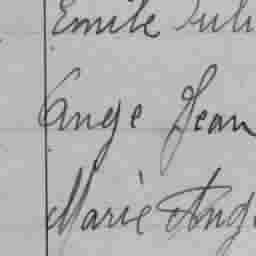 Emile Juli
Ange Jean
Marie Ang